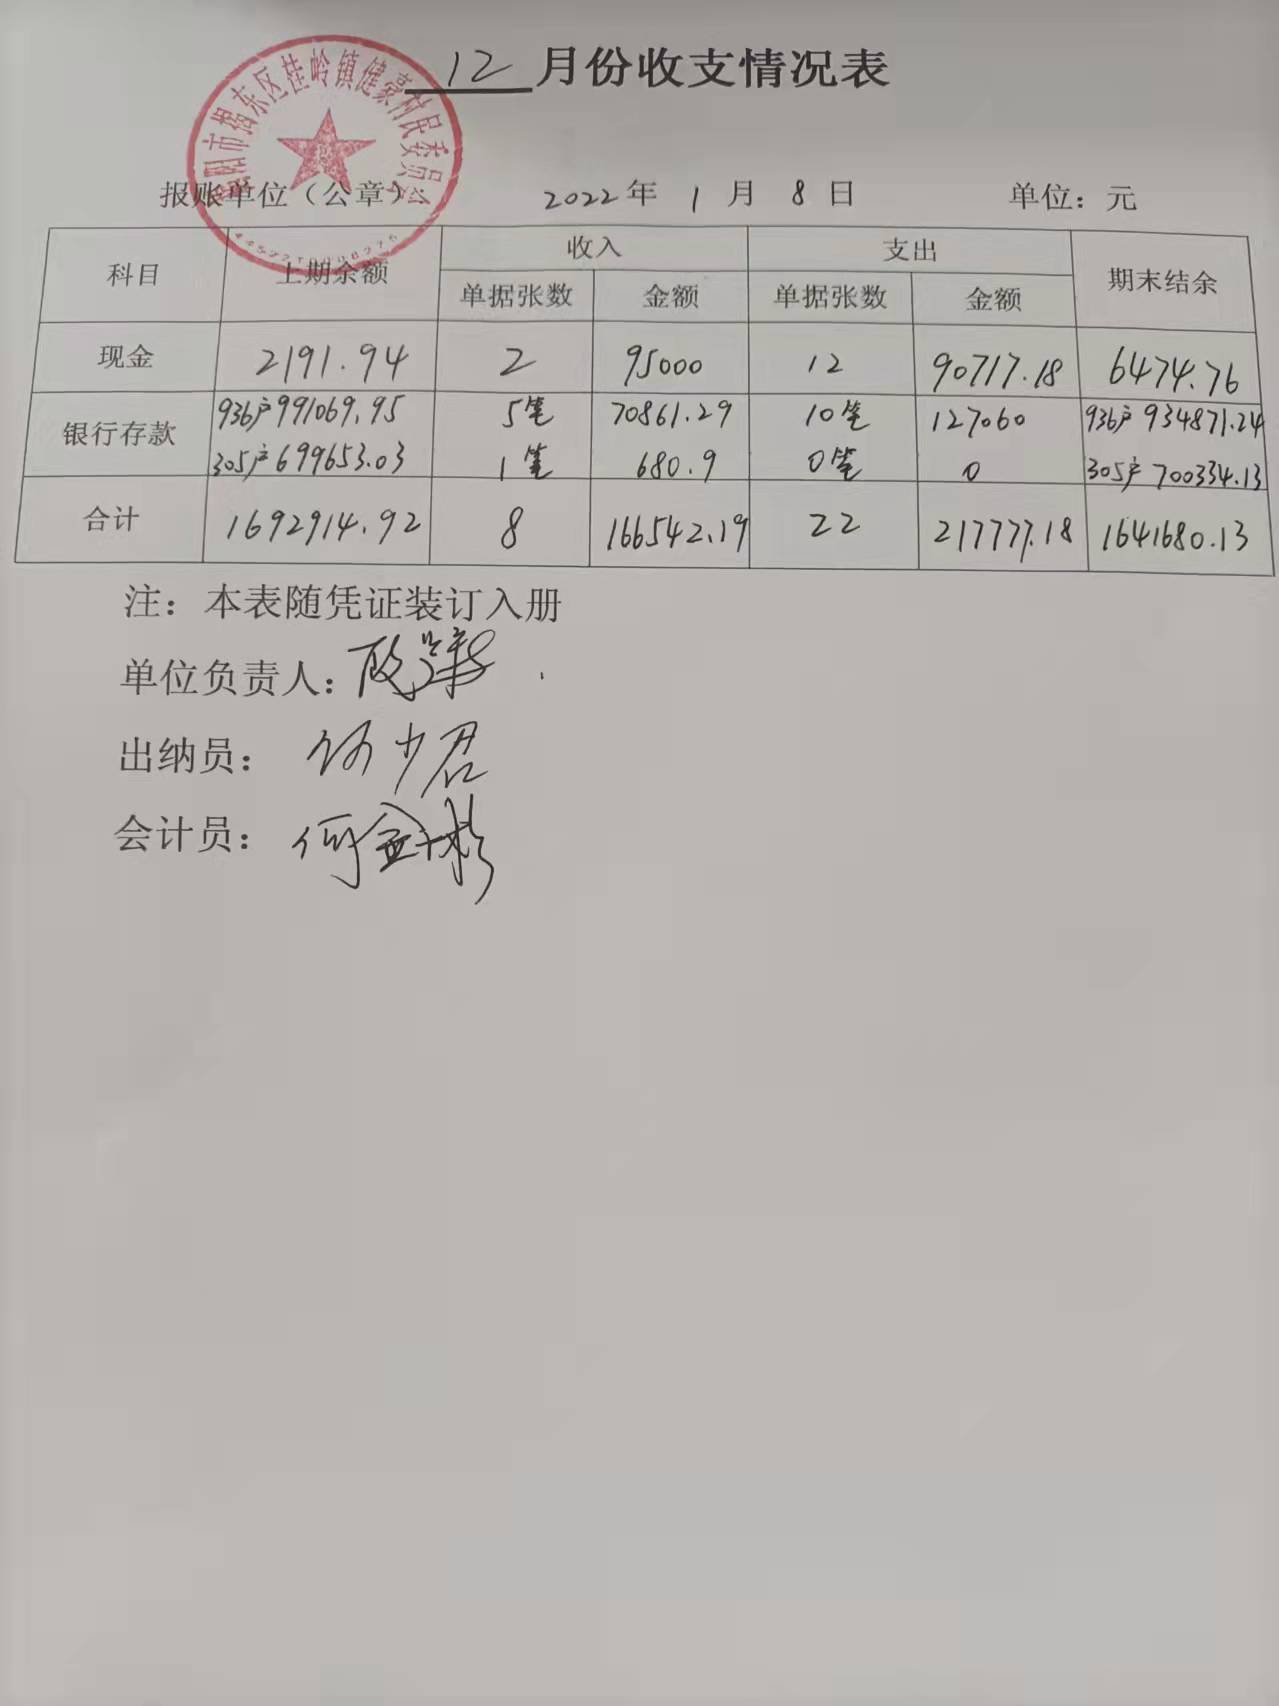 12 月份收支情况表
揭阳市揭东区桂岭镇健豪村民委员会
报账单位（公章）：
2022年 1 月 8 日
单位：元
科目 上期余额 收入 支出 期末结余
单据张数 金额 单据张数 金额
现金 2191.94 2 95000 12 90717.18 6474.76
银行存款 936户991069.95 5笔 70861.29 10笔 127060 936户 934871.24
305户699653.03 1笔 680.9 0笔 0 305户 700334.13
合计 1692914.92 8 166542.19 22 217777.18 1641680.13
注：本表随凭证装订入册
单位负责人：
出纳员： 何少君
会计员： 何金彬